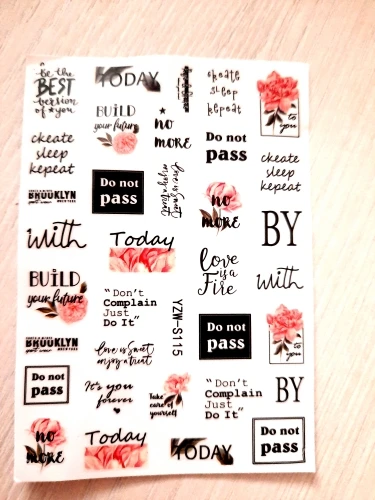 Be the
BEST
version
of you
TODAY
create
sleep
repeat
to
you
BUiLD
your future
no
MORE
Do not
pass
create
sleep
repeat
create
sleep
repeat
Do not
pass
love is sweet
enjoy a treat
BROOKLYN
no
MORE
BY
with
Today
love
is a
Fire
with
BUiLD
your future
"Don't
Complain
Just
Do It"
YZW-S115
Do not
pass
to
you
BROOKLYN
love is sweet
enjoy a treat
Do not
pass
It's you
forever
Take
care of
yourself
"Don't
Complain
Just
Do It"
BY
no
MORE
Today
TODAY
Do not
pass